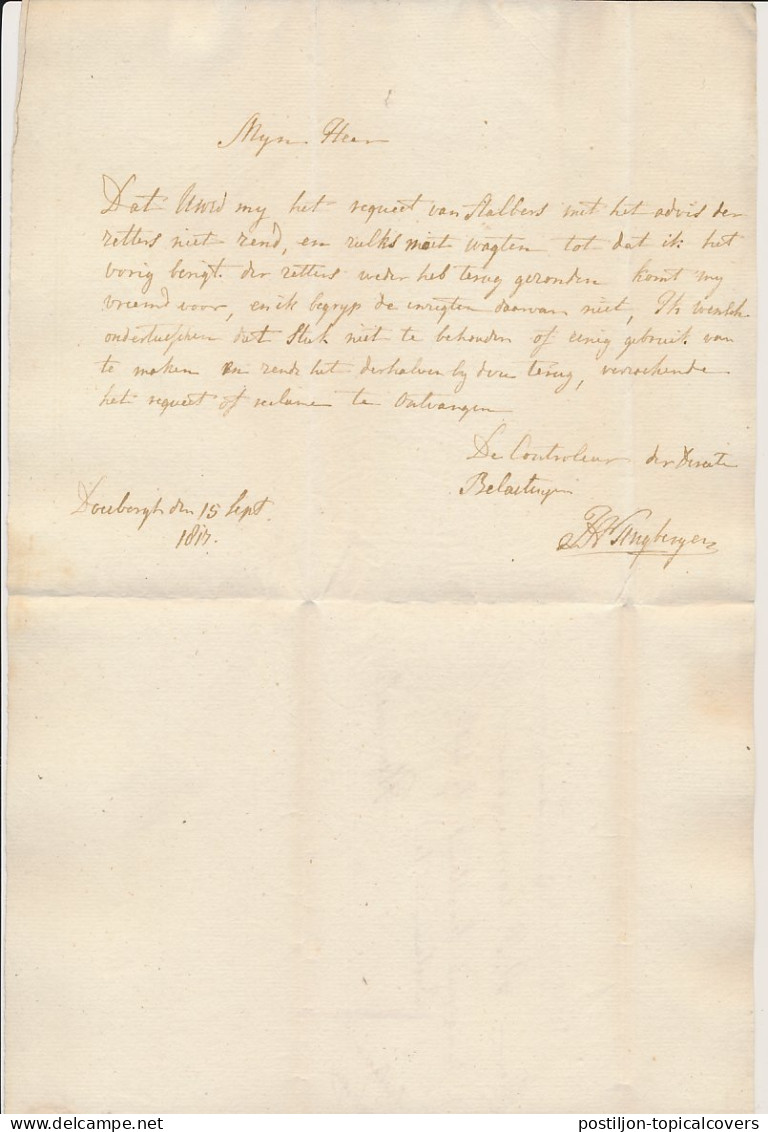 Myn Heer
Dat UWEd my het request van Aalbers met het advis der
zetters niet zend, en zulks moet wagten tot dat ik het
vorig berigt der zetters weder heb terug gezonden komt my
vreemd voor, en ik begryp de inzigten daarvan niet, Ik wensch
ondertusschen dat Stuk niet te behouden of eenig gebruik van
te maken en zende het derhalven by deze terug, verzoekende
het request of reclame te ontvangen
De Controleur der Directe
Belastingen
Doesborgh den 15 Sept.
1817.
postiljon-topicalcovers